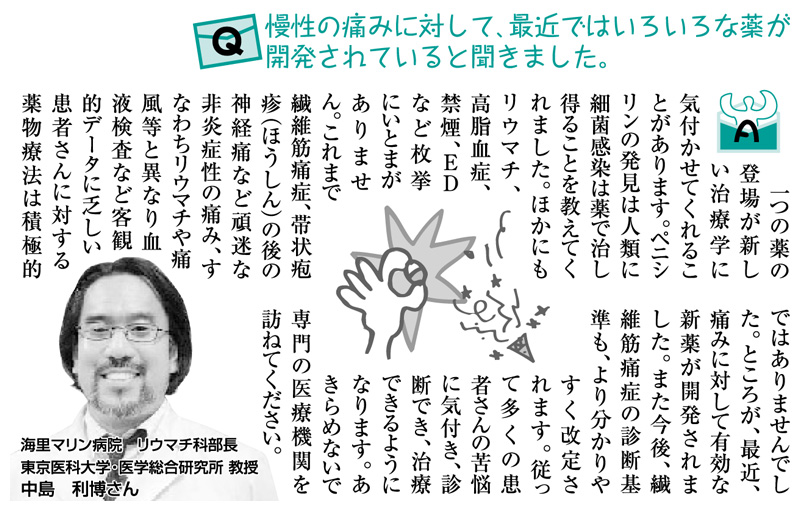 Q 慢性の痛みに対して、最近ではいろいろな薬が
開発されていると聞きました。
A
一つの薬の
登場が新し
い治療学に
気付かせてくれるこ
とがあります。ペニシ
リンの発見は人類に
細菌感染は薬で治し
得ることを教えてく
れました。ほかにも
リウマチ、
高脂血症、
禁煙、ED
など枚挙
にいとまが
ありませ
ん。これまで
繊維筋痛症、帯状疱
疹(ほうしん)の後の
神経痛など頑迷な
非炎症性の痛み、す
なわちリウマチや痛
風等と異なり血
液検査など客観
的データに乏しい
患者さんに対する
薬物療法は積極的
ではありませんでし
た。ところが、最近、
痛みに対して有効な
新薬が開発されま
した。また今後、繊
維筋痛症の診断基
準も、より分かりや
すく改定さ
れます。従っ
て多くの患
者さんの苦悩
に気付き、診
断でき、治療
できるように
なります。あ
きらめないで
専門の医療機関を
訪ねてください。
海里マリン病院　リウマチ科部長
東京医科大学・医学総合研究所 教授
中島　利博さん